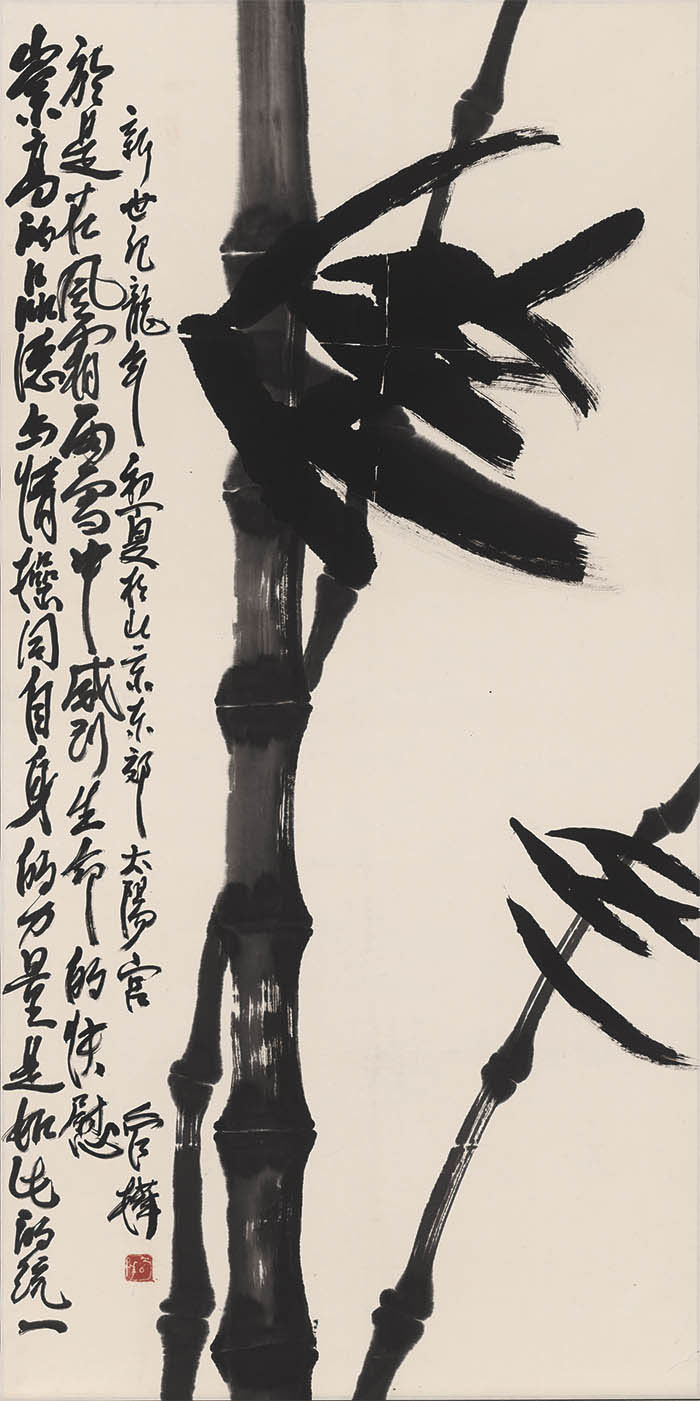 崇高的品德与情操同自身的力量是如此的统一
於是在风霜雨雪中感到生命的快慰
新世纪龍年初夏於北京东郊太陽宫
管樺